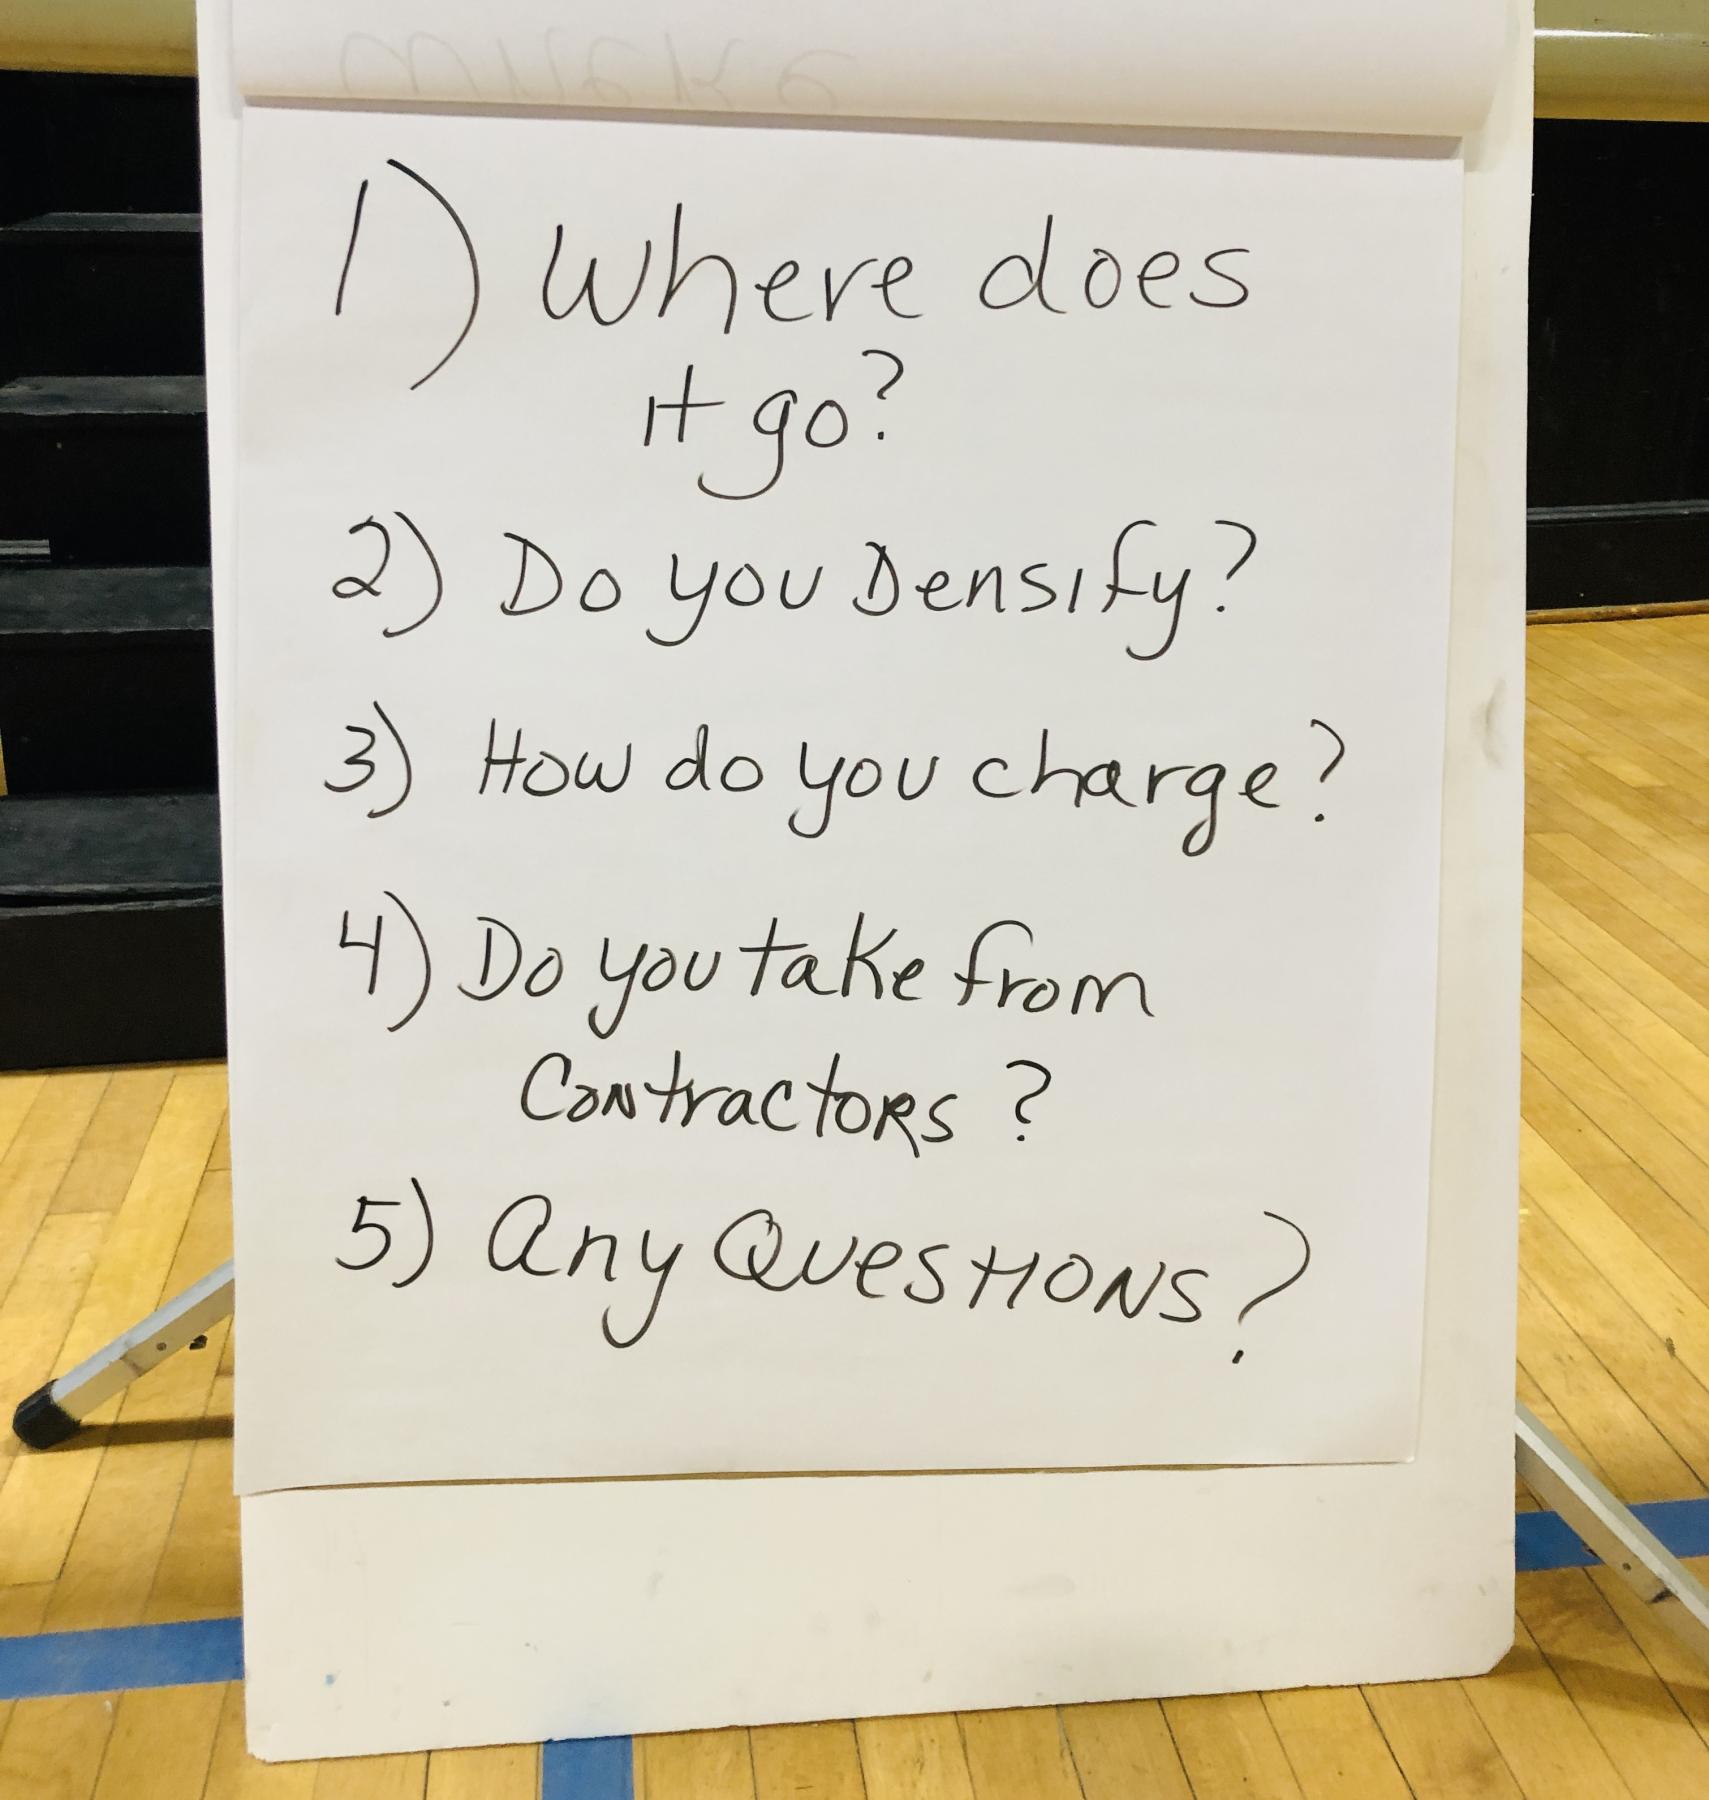 1) Where does
it go?
2) Do you Densify?
3) How do you charge?
4) Do you take from
Contractors?
5) Any Questions?